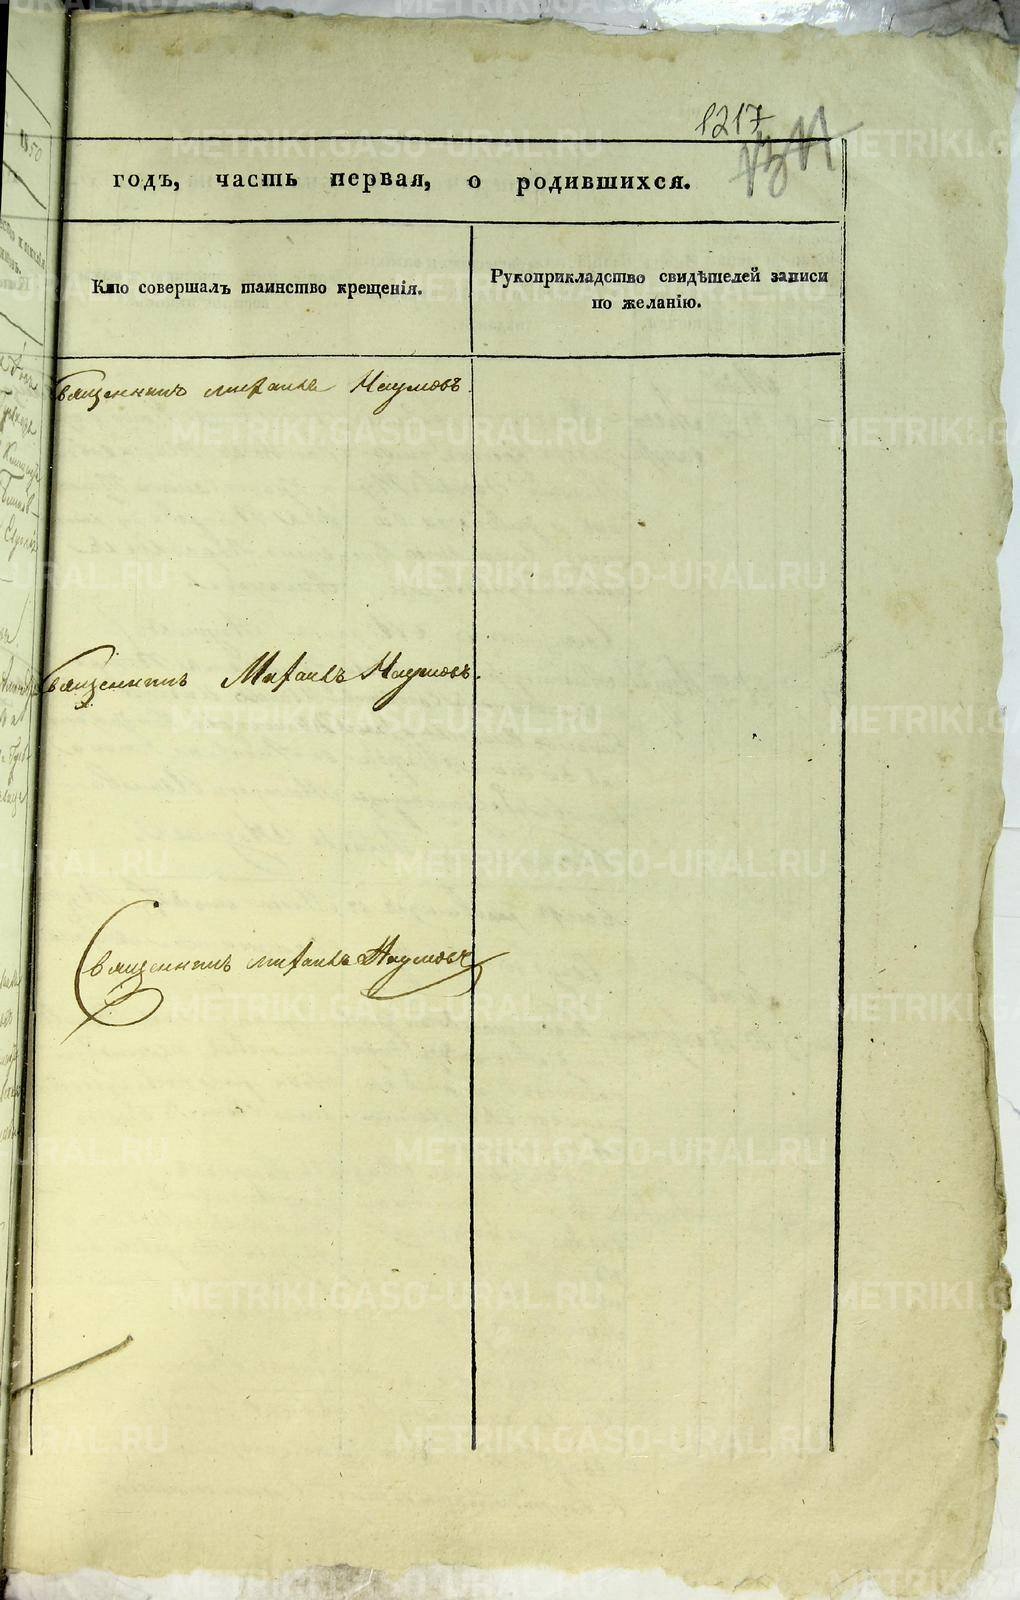 1217
годъ, часть первая, о родившихся.
Кто совершалъ таинство крещенія.
Рукоприкладство свидѣтелей записи
по желанію.
Священникъ Михаилъ Наумовъ
Священникъ Михаилъ Наумовъ.
Священникъ Михаилъ Наумовъ
METRIKI.GASO-URAL.RU